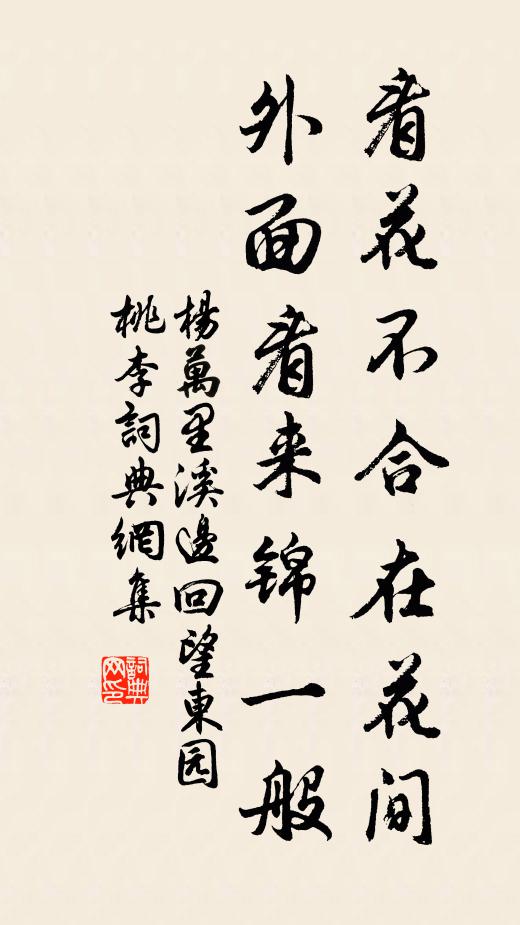 看花不合在花间
外面看来锦一般
楊萬里溪邊回望東园
桃李詞典網集
詞典网印